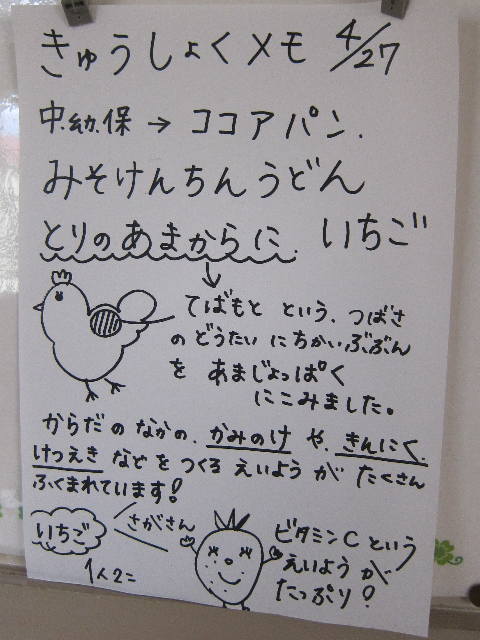 きゅうしょくメモ 4/27
中.幼.保 → ココアパン.
みそけんちんうどん
とりのあまからに. いちご
てばもと という、つばさ
の どうたい にちかいぶぶん
を あまじょっぱく
にこみました。
からだの なかの、かみのけ や、きんにく、
けつえき などを つくる えいよう が たくさん
ふくまれています!
いちご
さがさん
1人2こ
ビタミンCという
えいようが
たっぷり!